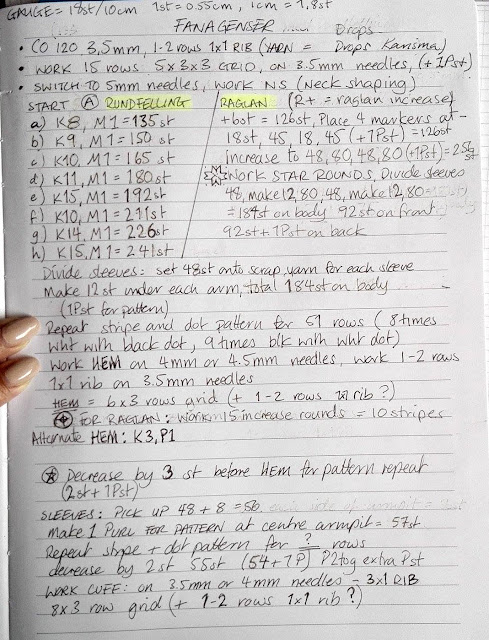 GAUGE = 18st/10cm 1st = 0.55cm, 1cm = 1,8st
FANAGENSER Drops
• CO 120 3,5mm, 1-2 rows 1x1 RIB (YARN = Drops Karisma)
• WORK 15 rows 5x3x3 GRID, ON 3.5mm needles, (+1Pst)
• SWITCH TO 5mm needles, work NS (Neck shaping)
START (A) RUNDFELLING
a) K8, M1 = 135st
b) K9, M1 = 150 st
c) K10, M1 = 165 st
d) K11, M1 = 180st
e) K15, M1 = 192st
f) K10, M1 = 211st
g) K14, M1 = 226st
h) K15, M1 = 241st
RAGLAN (R+ = raglan increase)
+6st = 126st, Place 4 markers at -
18st, 45, 18, 45 (+1Pst) = 126st
increase to 48, 80, 48, 80 (+1Pst) = 256 st
WORK STAR ROUNDS, Divide sleeves
48, make 12, 80, 48, make 12, 80
= 184st on body 92st on front
92st + 1Pst on back
Divide sleeves: set 48st onto scrap yarn for each sleeve
Make 12st under each arm, total 184st on body
(1Pst for pattern)
Repeat stripe and dot pattern for 51 rows (8 times
wht with back dot, 9 times blk with wht dot)
Work HEM on 4mm or 4.5mm needles, work 1-2 rows
1x1 rib on 3.5mm needles
HEM = 6x3 rows grid (+ 1-2 rows 1x1 rib?)
FOR RAGLAN: work 15 increase rounds = 10 stripes
Alternate HEM: K3, P1
Decrease by 3 st before HEM for pattern repeat
(2st + 1Pst)
SLEEVES: PICK UP 48 + 8 = 56
make 1 PURL FOR PATTERN at centre armpit = 57st
Repeat stripe + dot pattern for ? rows
decrease by 2st 55st (54+1P) P2tog extra Pst
WORK CUFF: on 3.5mm or 4mm needles - 3x1 RIB
8x3 row grid (+ 1-2 rows 1x1 rib?)